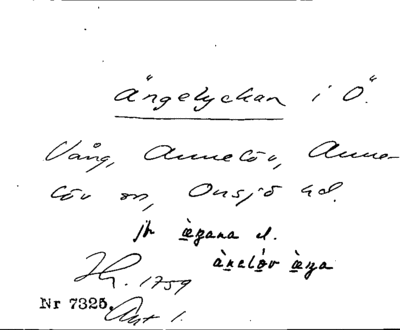 Ängelyckan i Ö.
Vång, Annelöv, Anne-
löv sn, Onsjö hd.
jfr ægana el.
ànelöv æga
Hr. 1759
Nr 7325. Ant 1.